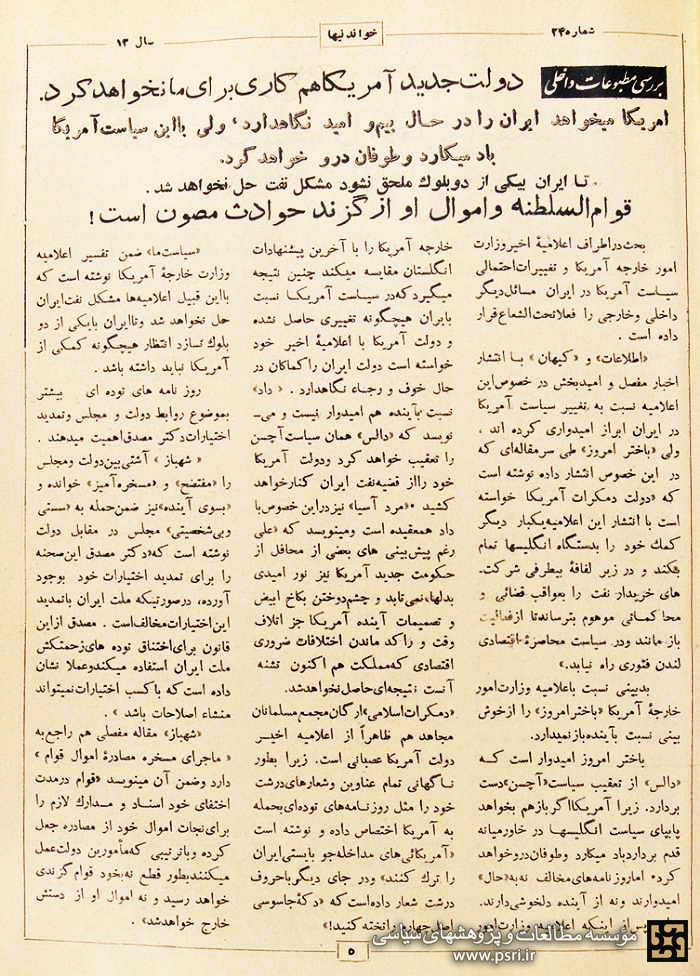 شماره ۲۴
خواندنیها
سال ۱۳
بررسی مطبوعات داخلی
دولت جدید آمریکا هم کاری برای ما نخواهد کرد.
امریکا میخواهد ایران را در حال بیم و امید نگاهدارد، ولی با این سیاست آمریکا
باد میکارد و طوفان درو خواهد کرد.
تا ایران بیکی از دو بلوك ملحق نشود مشکل نفت حل نخواهد شد.
قوام السلطنه و اموال او از گزند حوادث مصون است!
بحث در اطراف اعلامیهٔ اخیر وزارت
امور خارجه آمریکا و تغییرات احتمالی
سیاست آمریکا در ایران مسائل دیگر
داخلی وخارجی را فعلا تحت الشعاع قرار
داده است .
«اطلاعات» و «کیهان» با انتشار
اخبار مفصل و امیدبخش در خصوص این
اعلامیه نسبت به تغییر سیاست آمریکا
در ایران ابراز امیدواری کرده اند ،
ولی «باختر امروز» طی سرمقاله‌ای که
در این خصوص انتشار داده نوشته است
که «دولت دمکرات آمریکا خواسته
است با انتشار این اعلامیه یکبار دیگر
کمك خود را بدستگاه انگلیسها تمام
بکند و در زیر لفافهٔ بیطرفی شرکت‌ـ
های خریدار نفت را بعواقب قضائی و
محاکماتی موهوم بترساند تا از فعالیت
باز مانند و در سیاست محاصرهٔ اقتصادی
لندن فتوری راه نیابد.»
بدبینی نسبت باعلامیه وزارت امور
خارجهٔ آمریکا «باختر امروز» را از خوش
بینی نسبت بآینده باز نمیدارد.
باختر امروز امیدوار است که
«دالس» از تعقیب سیاست «آچسن» دست
بردارد. زیرا آمریکا اگر باز هم بخواهد
پابپای سیاست انگلیسها در خاورمیانه
قدم بردارد باد میکارد و طوفان درو خواهد
کرد. اما روزنامه‌های مخالف نه به «حال»
امیدوارند و نه از آینده دلخوشی دارند.
از اینکه اعلامیهٔ وزارت امور
خارجه آمریکا را با آخرین پیشنهادات
انگلستان مقایسه میکند چنین نتیجه
میگیرد که در سیاست آمریکا نسبت
بایران هیچگونه تغییری حاصل نشده
و دولت آمریکا با اعلامیهٔ اخیر خود
خواسته است دولت ایران را کماکان در
حال خوف و رجاء نگاهدارد . «داد»
نسبت بآینده هم امیدوار نیست و می‌ـ
نویسد که «دالس» همان سیاست آچسن
را تعقیب خواهد کرد و دولت آمریکا
خود را از قضیه نفت ایران کنار خواهد
کشید . «مرد آسیا» نیز در این خصوص با
داد همعقیده است و مینویسد که «علی
رغم پیش‌بینی های بعضی از محافل از
حکومت جدید آمریکا نیز نور امیدی
بدلها نمی‌تابد و چشم دوختن بکاخ ابیض
و تصمیمات آینده آمریکا جز اتلاف
وقت و راکد ماندن اختلافات ضروری
اقتصادی که مملکت هم اکنون تشنه
آنست : نتیجه‌ای حاصل نخواهد شد.
«دمکرات اسلامی» ارگان مجمع مسلمانان
مجاهد هم ظاهراً از اعلامیه اخیر
دولت آمریکا عصبانی است. زیرا بطور
ناگهانی تمام عناوین و شعارهای درشت
خود را مثل روزنامه‌های توده‌ای بحمله
به آمریکا اختصاص داده و نوشته است
«آمریکائی های مداخله‌جو بایستی ایران
را ترك کنند» و در جای دیگر با حروف
درشت شعار داده است که «دکهٔ جاسوسی
اصل چهار را تخته کنید!»
«سیاست ما» ضمن تفسیر اعلامیه
وزارت خارجهٔ آمریکا نوشته است که
با این قبیل اعلامیه‌ها مشکل نفت ایران
حل نخواهد شد و تا ایران با یکی از دو
بلوك نسازد انتظار هیچگونه کمکی از
آمریکا نباید داشته باشد .
روز نامه های توده ای بیشتر
بموضوع روابط دولت و مجلس و تمدید
اختیارات دکتر مصدق اهمیت میدهند .
«شهباز» آشتی بین دولت و مجلس
را «مفتضح» و «مسخره آمیز» خوانده و
«بسوی آینده» نیز ضمن حمله به «سستی
و بی شخصیتی» مجلس در مقابل دولت
نوشته است که «دکتر مصدق این صحنه
را برای تمدید اختیارات خود بوجود
آورده، در صورتیکه ملت ایران با تمدید
این اختیارات مخالف است . مصدق از این
قانون برای اختناق توده های زحمتکش
ملت ایران استفاده میکند و عملا نشان
داده است که با کسب اختیارات نمیتواند
منشاء اصلاحات باشد »
«شهباز» مقاله مفصلی هم راجع به
« ماجرای مسخره مصادرهٔ اموال قوام »
دارد و ضمن آن مینویسد «قوام در مدت
اختفای خود اسناد و مدارك لازم را
برای نجات اموال خود از مصادره جعل
کرده و با ترتیبی که مأمورین دولت عمل
میکنند بطور قطع نه بخود قوام گزندی
خواهد رسید و نه اموال او از دستش
خارج خواهد شد»
۵
مؤسسه مطالعات و پژوهشهای سیاسی
www.psri.ir